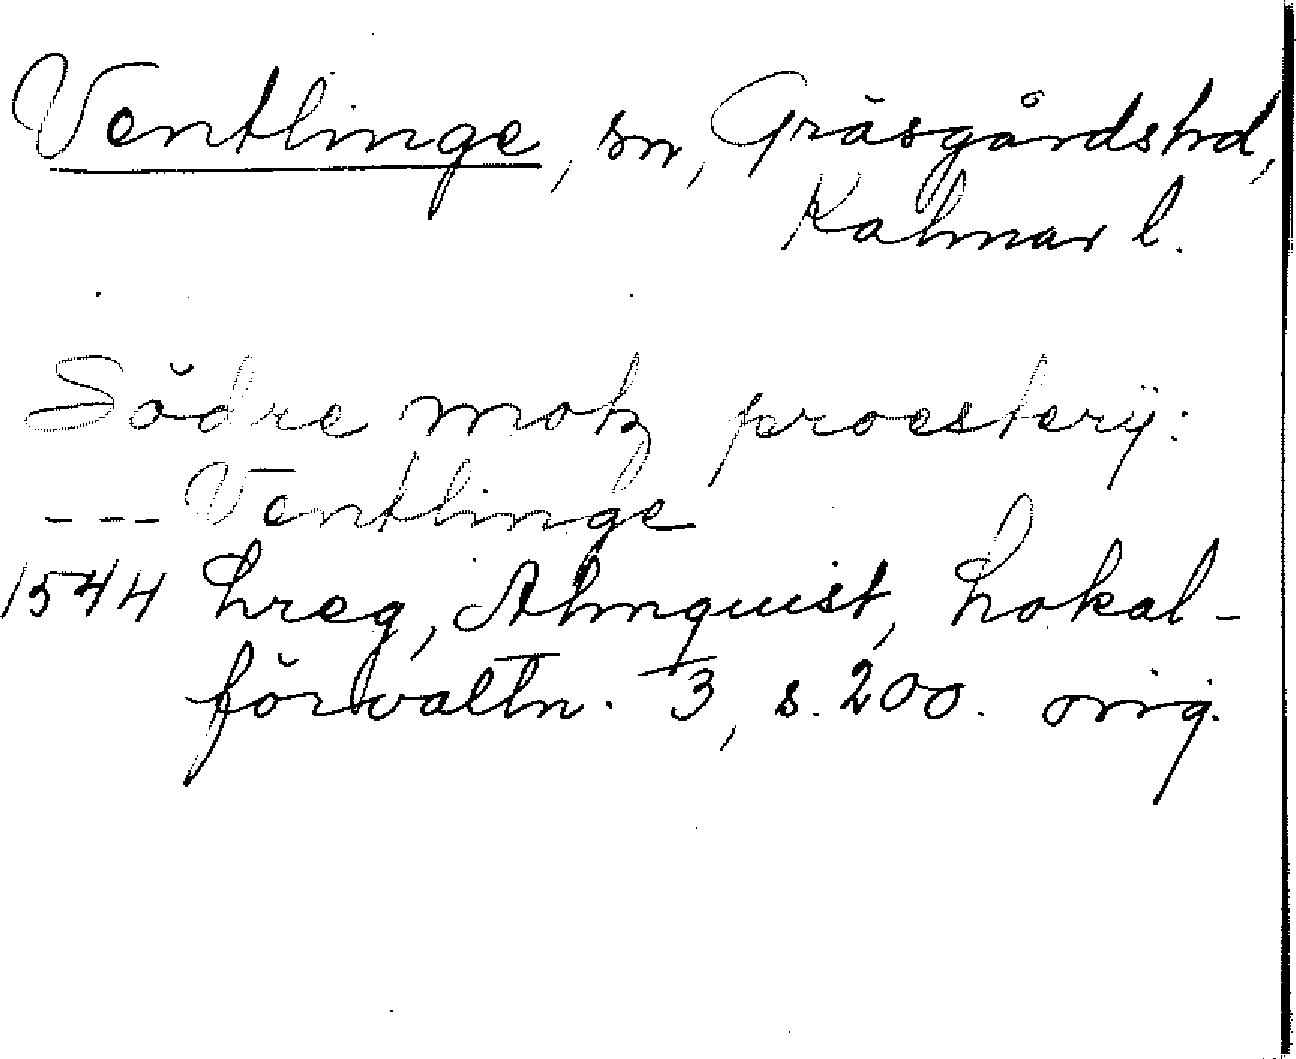 Ventlinge, sn, Gräsgårds hd,
Kalmar l.
Södre motz proesterij:
--- Ventlinge
1544 Lreg, Almquist, Lokal-
förvaltn. 3, s. 200. orig.